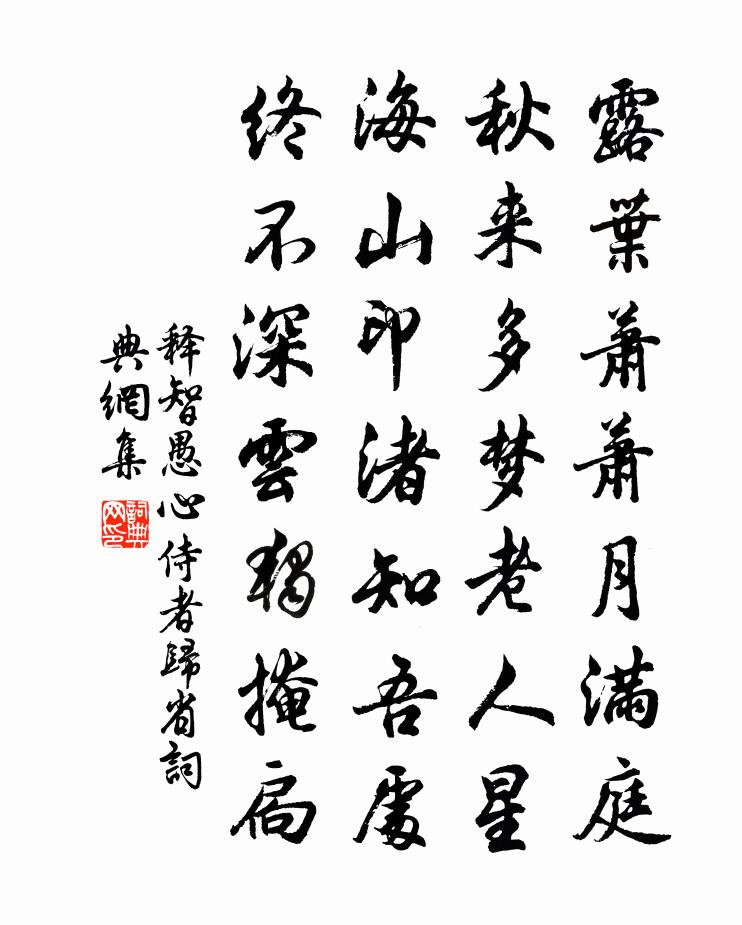 露葉蕭蕭月滿庭
秋来多梦老人星
海山印渚知吾處
終不深雲獨掩扃
释智愚心侍者歸省詞
典網集
詞典
网印